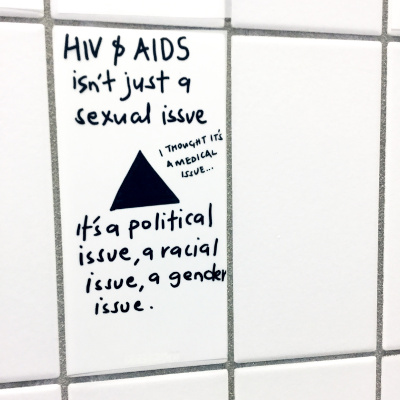 HIV & AIDS
isn't just a
sexual issue
I THOUGHT IT'S
A MEDICAL
ISSUE...
it's a political
issue, a racial
issue, a gender
issue.